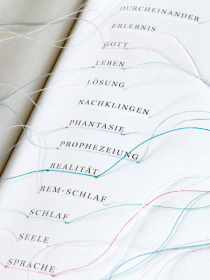 DURCHEINANDER
ERLEBNIS
GOTT
LEBEN
LÖSUNG
NACHKLINGEN
PHANTASIE
PROPHEZEIUNG
REALITÄT
REM-SCHLAF
SCHLAF
SEELE
SPRACHE